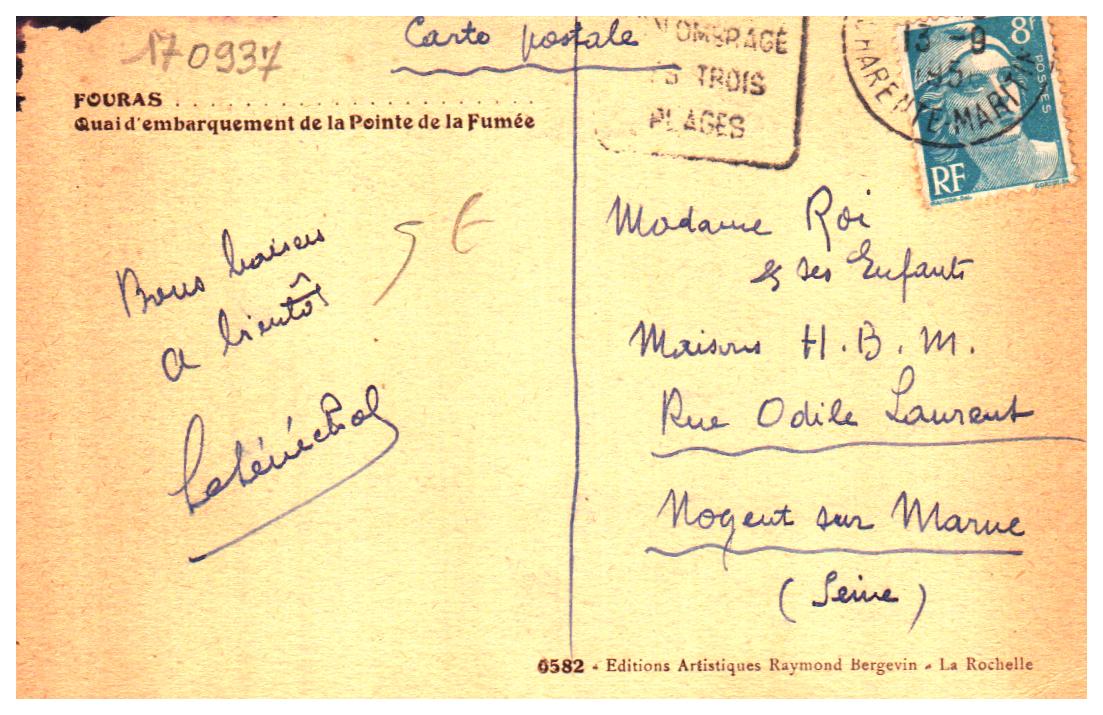 170937
Carte postale
OMBRAGE
TROIS
PLAGES
13 -9
CHARENTE-MARITIME
8f
POSTES
RF
FOURAS
Quai d'embarquement de la Pointe de la Fumée
5 €
Bons baisers
a bientôt
LeSénéchal
Madame Roi
& ses Enfants
Maisons H.B.M.
Rue Odile Laurent
Nogent sur Marne
(Seine)
6582 - Editions Artistiques Raymond Bergevin - La Rochelle